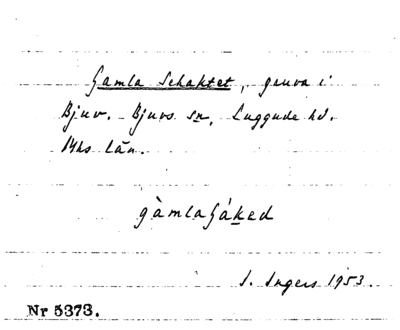 Gamla Schaktet, gruva i
Bjuv. - Bjuvs sn, Luggude hd.
Mhs län.
gàmlaʃáḵed
I. Ingers 1953.
Nr 5373.